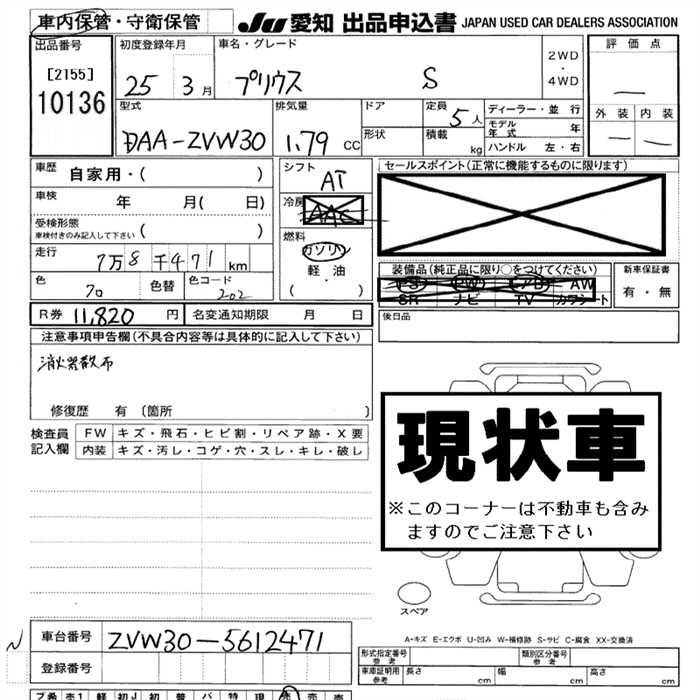 車内保管・守衛保管
JU 愛知 出品申込書 JAPAN USED CAR DEALERS ASSOCIATION
出品番号
[2155]
10136
初度登録年月
25 3月
車名・グレード
プリウス S
2WD
・
4WD
評価点
—
外装 内装
— —
型式
DAA-ZVW30
排気量
1.79 CC
ドア
形状
定員 5人
積載 kg
ディーラー・並行
モデル年式 年
ハンドル 左・右
車歴 自家用・( )
車検 年 月( 日)
受検形態
車検付きのみ記入して下さい ( )
走行 7万8千471km
色 クロ 色替
色コード 202
シフト AT
冷房 AAC
燃料
ガソリン
軽・油
( ・ )
セールスポイント(正常に機能するものに限ります)
装備品(純正品に限り○をつけてください)
PS PW AW
SR ナビ TV カワシート
新車保証書
有・無
R券 11,820円
名変通知期限 月 日
後日品
注意事項申告欄(不具合内容等は具体的に記入して下さい)
消火器散布
修復歴 有〔箇所 〕
検査員記入欄
FW キズ・飛石・ヒビ割・リペア跡・X要
内装 キズ・汚レ・コゲ・穴・スレ・キレ・破レ
現状車
※このコーナーは不動車も含み
ますのでご注意下さい
スペア
A-キズ E-エクボ U-凹み W-補修跡 S-サビ C-腐食 XX-交換済
N
車台番号 ZVW30-5612471
登録番号
形式指定番号 参考
類別区分番号 参考
車庫証明用 参考 長さ cm 幅 cm 高さ cm